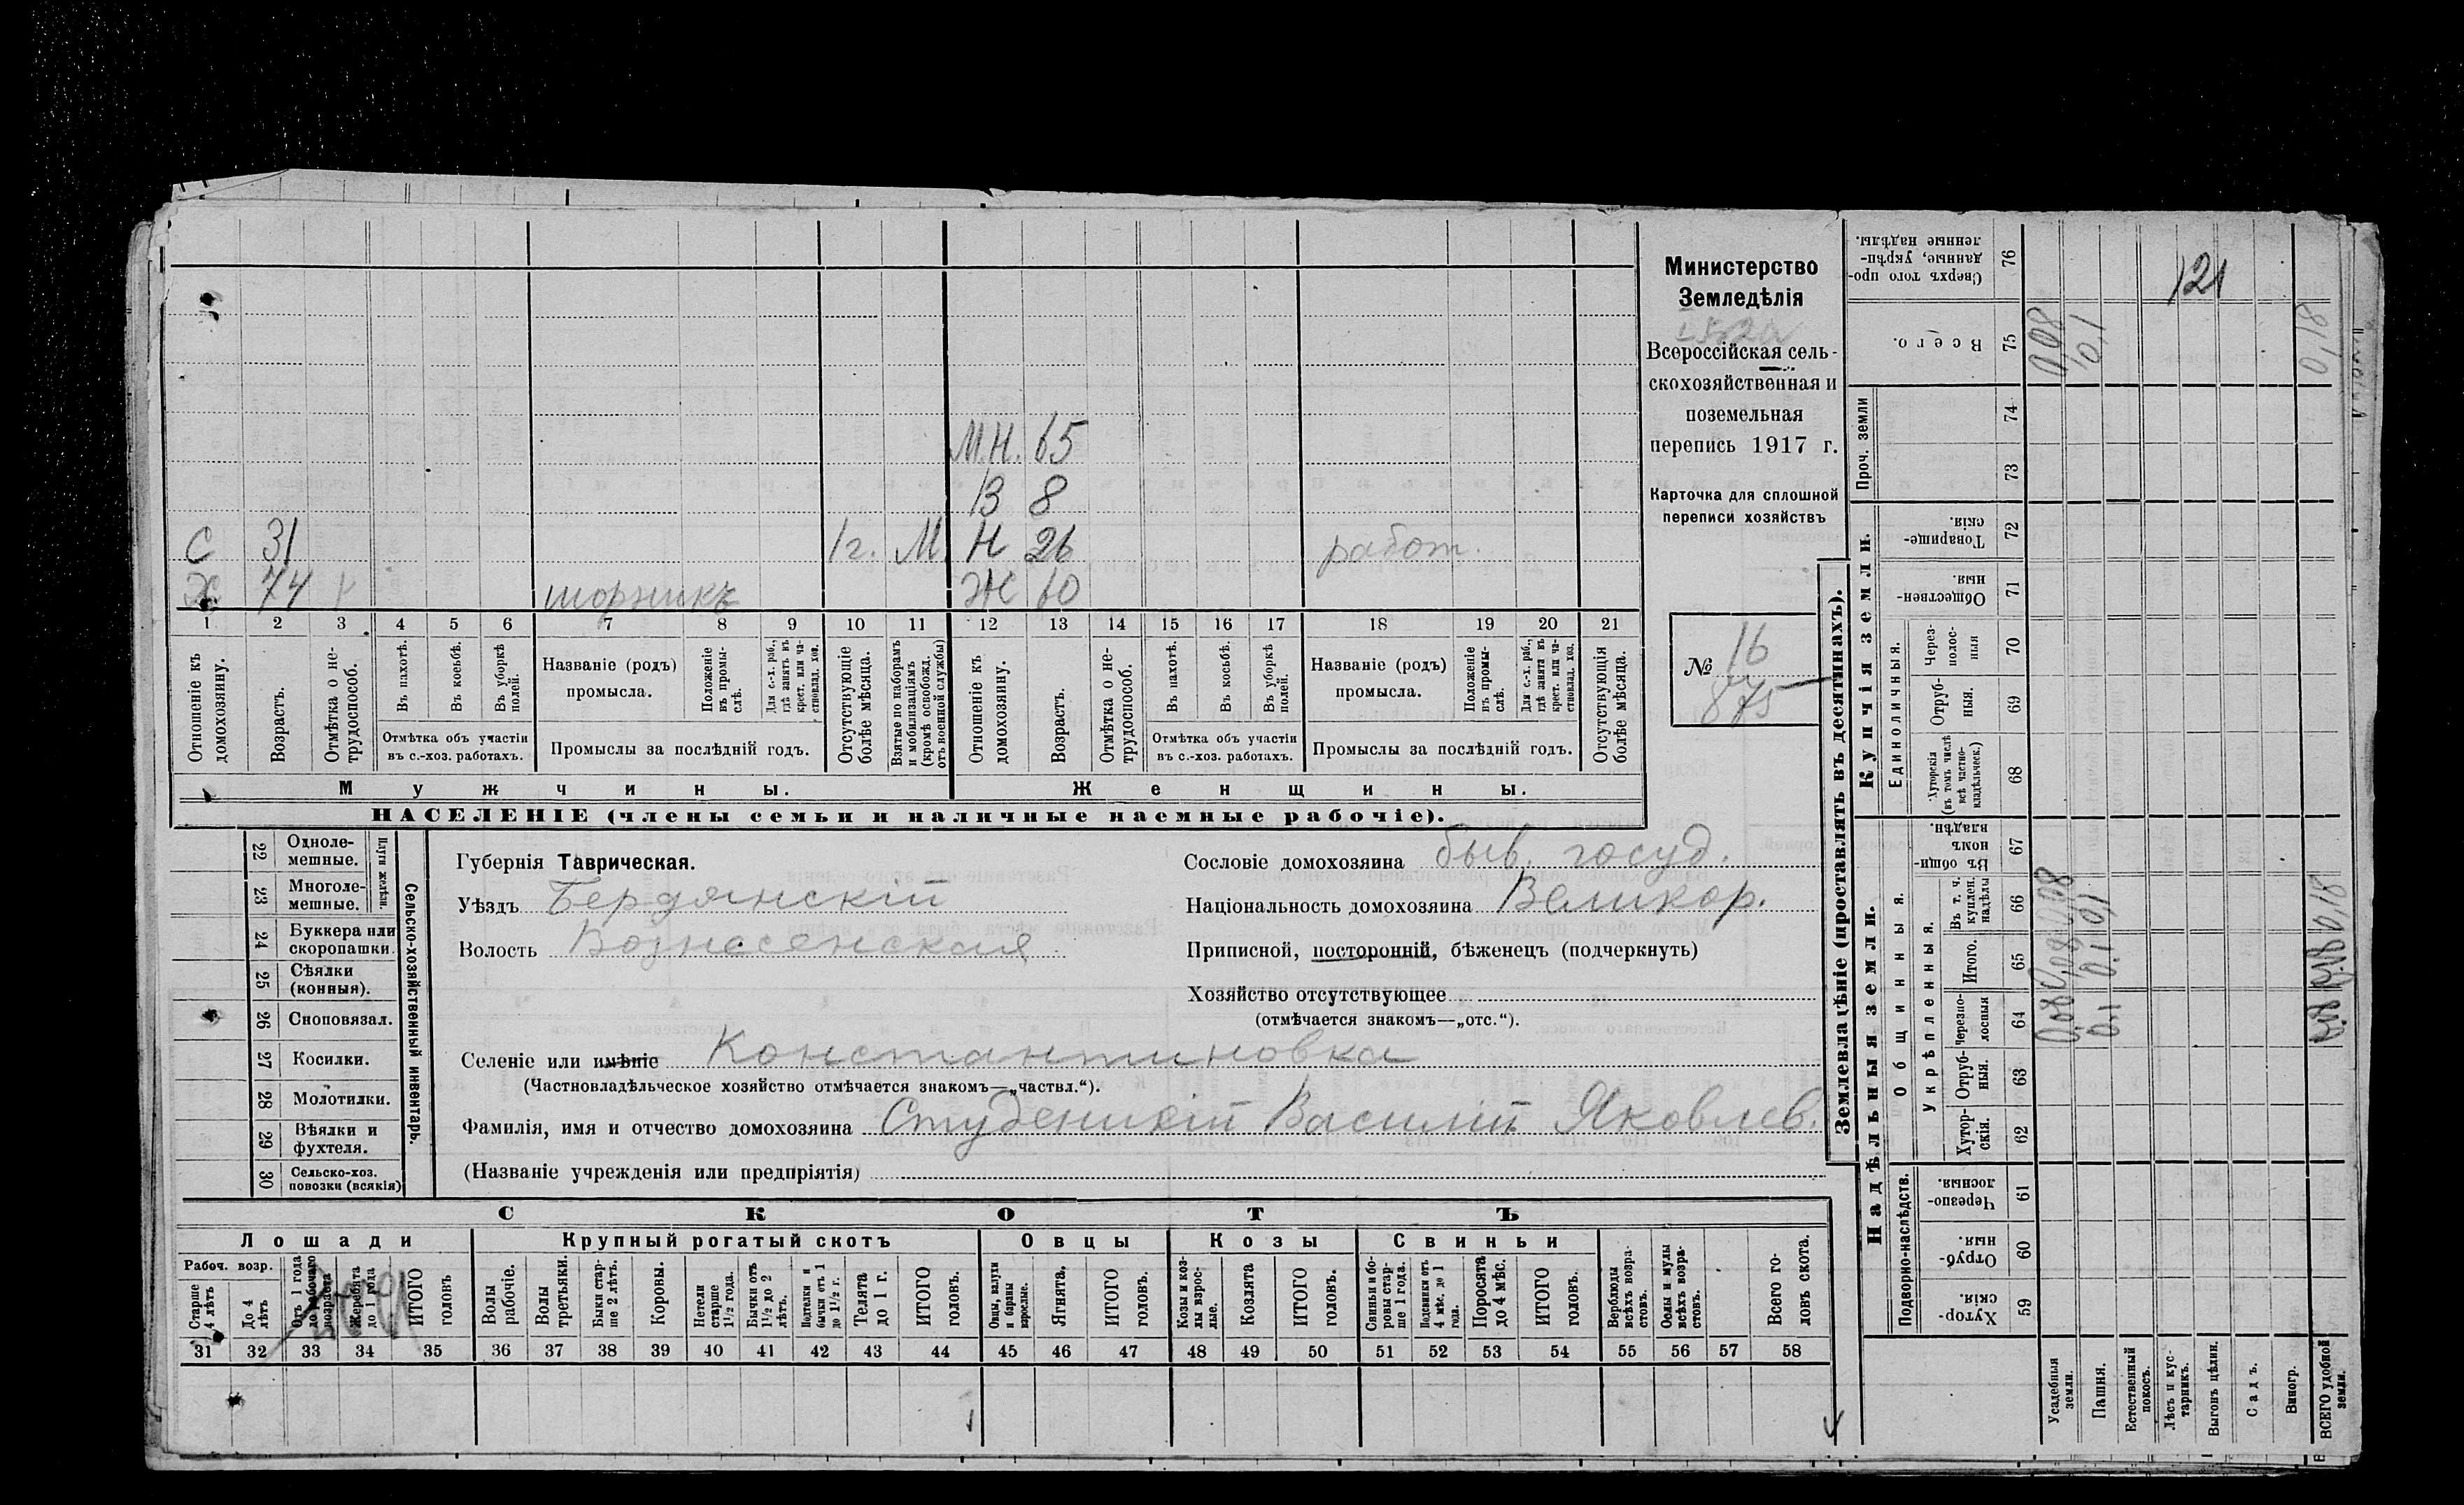 М.Н. 65
В 8
С 31 1г. М. Н 26 работ.
Х 74 шорникъ Ж 60
1 2 3 4 5 6 7 8 9 10 11 12 13 14 15 16 17 18 19 20 21
Отношеніе къ домохозяину.
Возрастъ.
Отмѣтка о не-трудоспособ.
Въ пахотѣ.
Въ косьбѣ.
Въ уборкѣ полей.
Отмѣтка объ участіи
въ с.-хоз. работахъ.
Названіе (родъ)
промысла.
Положеніе въ промы-слѣ.
Для с.-х. раб., гдѣ занятъ въ крест. или ча-стновлад. хоз.
Промыслы за послѣдній годъ.
Отсутствующіе болѣе мѣсяца.
Взятые по наборамъ и мобилизаціямъ (кромѣ освобожд. отъ военной службы)
Отношеніе къ домохозяину.
Возрастъ.
Отмѣтка о не-трудоспособ.
Въ пахотѣ.
Въ косьбѣ.
Въ уборкѣ полей.
Отмѣтка объ участіи
въ с.-хоз. работахъ.
Названіе (родъ)
промысла.
Положеніе въ промы-слѣ.
Для с.-х. раб., гдѣ занята въ крест. или ча-стновлад. хоз.
Промыслы за послѣдній годъ.
Отсутствующія болѣе мѣсяца.
Мужчины. Женщины.
НАСЕЛЕНІЕ (члены семьи и наличные наемные рабочіе).
Министерство
Земледѣлія
Всероссійская сель-
скохозяйственная и
поземельная
перепись 1917 г.
Карточка для сплошной
переписи хозяйствъ
№ 16
875
22 Одноле-мешные.
23 Многоле-мешные.
Плуги желѣзн.
24 Буккера или скоропашки.
25 Сѣялки (конныя).
26 Сноповязал.
27 Косилки.
28 Молотилки.
29 Вѣялки и фухтеля.
30 Сельско-хоз. повозки (всякія)
Сельско-хозяйственный инвентарь.
Губернія Таврическая.
Уѣздъ Бердянскій
Волость Вознесенская
Сословіе домохозяина быв. госуд.
Національность домохозяина Великор.
Приписной, посторонній, бѣженецъ (подчеркнуть)
Хозяйство отсутствующее
(отмѣчается знакомъ—„отс.“).
Селеніе или имѣніе Константиновка
(Частновладѣльческое хозяйство отмѣчается знакомъ—„частвл.“).
Фамилія, имя и отчество домохозяина Студеникій Василій Яковлев.
(Названіе учрежденія или предпріятія)
СКОТЪ
Лошади Крупный рогатый скотъ Овцы Козы Свиньи
Рабоч. возр.
Старше 4 лѣтъ
До 4 лѣтъ
Отъ 1 года до рабочаго возраста
Жеребята до 1 года
ИТОГО головъ
Волы рабочіе.
Волы третьяки.
Быки стар-ше 2 лѣтъ.
Коровы.
Нетели старше 1½ года.
Бычки отъ 1½ до 2 лѣтъ.
Подтелки и бычки отъ 1 до 1½ г.
Телята до 1 г.
ИТОГО головъ.
Овцы, валухи и бараны взрослые.
Ягнята.
ИТОГО головъ.
Козы и коз-лы взрос-лые.
Козлята
ИТОГО головъ.
Свиньи и бо-ровы стар-ше 1 года.
Подсвинки отъ 4 мѣс. до 1 года.
Поросята до 4 мѣс.
ИТОГО головъ.
Верблюды всѣхъ возра-стовъ.
Ослы и мулы всѣхъ возра-стовъ.
Всего го-ловъ скота.
31 32 33 34 35 36 37 38 39 40 41 42 43 44 45 46 47 48 49 50 51 52 53 54 55 56 57 58
Землевладѣніе (проставлять въ десятинахъ).
Купчія земли.
Надѣльныя земли.
Сверхъ того про-данные, укрѣп-ленные надѣлы. 76
121
Всего. 75 0,08 0,1 0,18
Проч. земли 74 73
Товарище-скія. 72
Обществен-ныя. 71
Единоличныя.
Через-полос-ныя 70
Отруб-ныя. 69
Хуторскія (въ томъ числѣ всѣ частно-владѣльческ.) 68
Общинныя.
Въ общи-номъ владѣн. 67
Укрѣпленныя.
Въ т. ч. куплен. надѣлы 66 0,08 0,1 0,18
Итого. 65 0,08 0,1
Черезпо-лосныя 64 0,08 0,1
Отруб-ныя. 63
Хутор-скія. 62
Подворно-наслѣдств.
Черезпо-лосныя 61
Отруб-ныя. 60
Хутор-скія. 59
Усадебныя земли.
Пашня.
Естественный покосъ.
Лѣсъ и кус-тарникъ.
Выгонъ цѣлин.
Садъ.
Виногр.
ВСЕГО удобной земли.